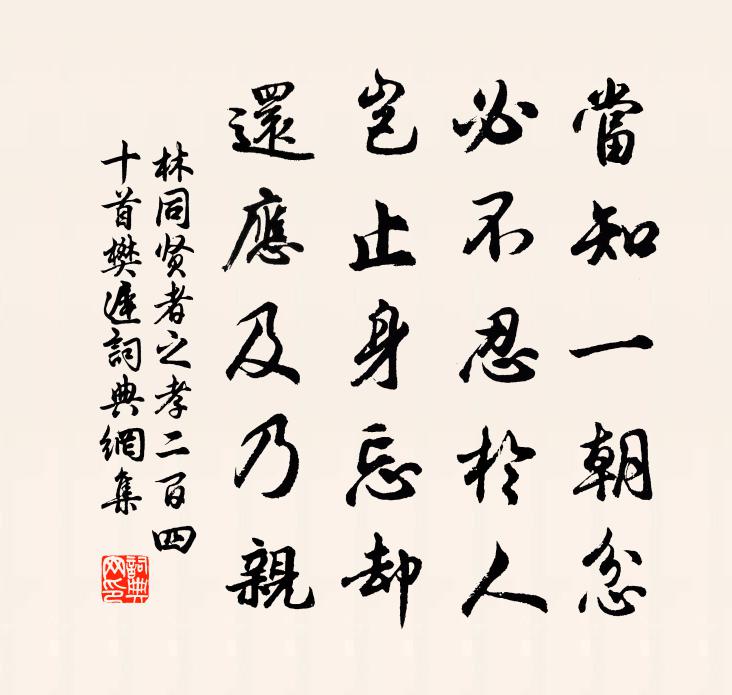 當知一朝忿
必不忍於人
豈止身忘却
還應及乃親
林同贤者之孝二百四
十首樊遲詞典網集
詞典
网印